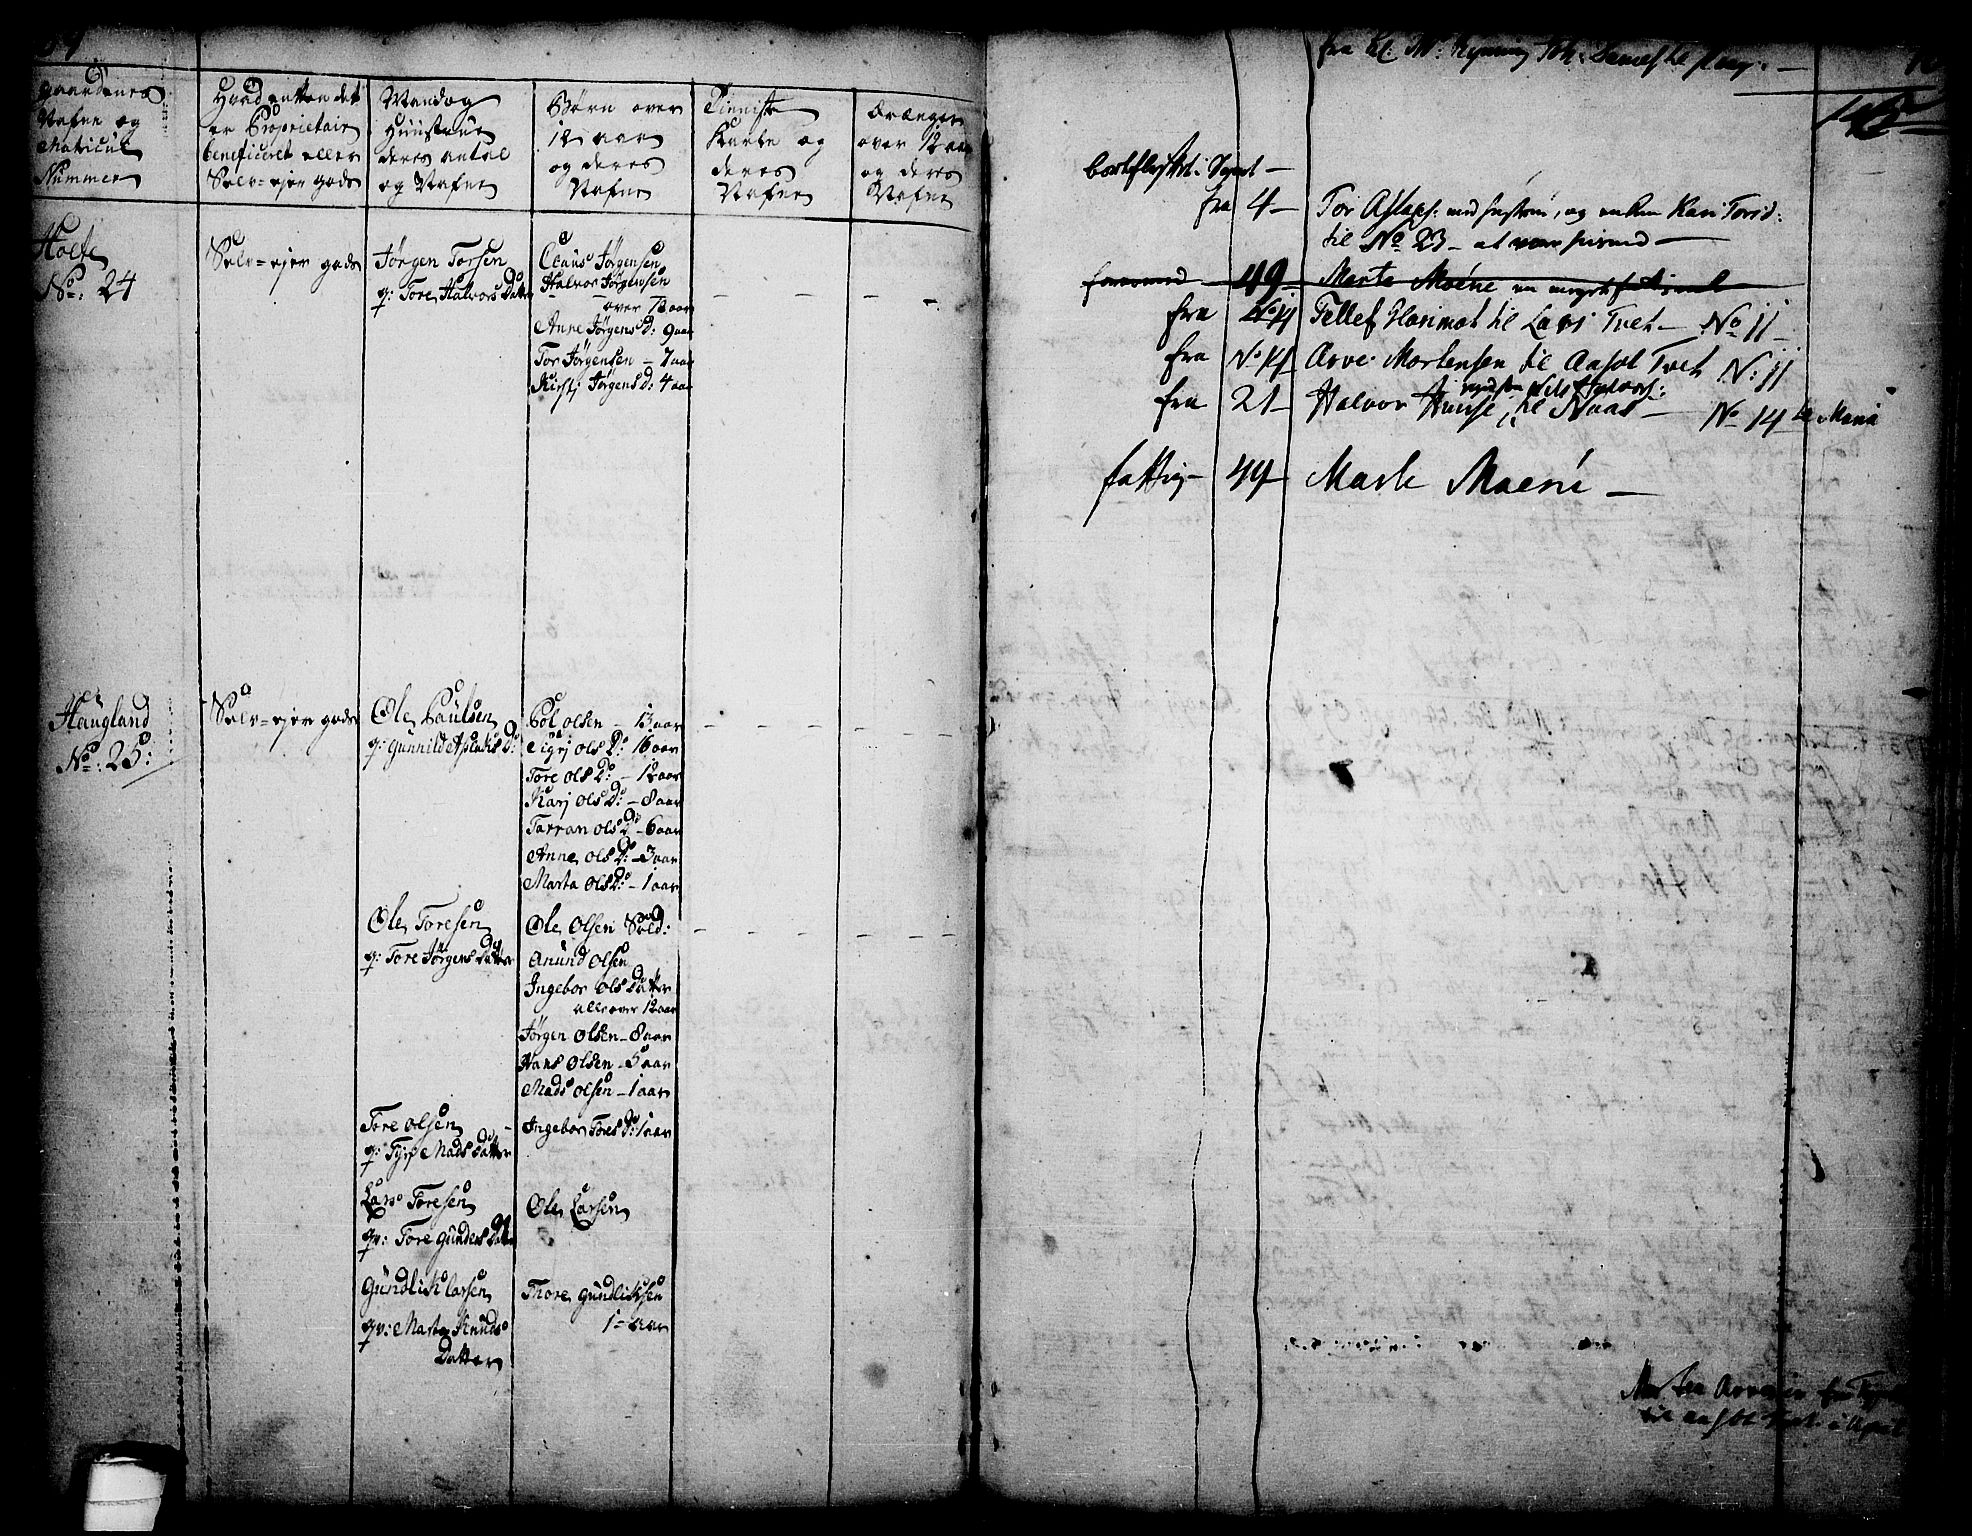 Gaardenes
Nafne og
Matricul
Nummer
Hvad enten det
er Proprietair
beneficeret eller
Selv-ejer gods
Mand og
Huustrue
deres antal
og Nafne
Børn over
12 aar
og deres
Nafne
Tieniste
Karle og
deres
Nafne
Drænger
over 12 aar
og deres
Nafne
Holte
No: 24
Selv-ejer gods
Jørgen Torsen
q: Tore Halvors Datter
Claus Jørgensen
Halvor Jørgensen
over 12 aar
Anne Jørgens D: 9 aar
Tor Jørgensen - 7 aar
Kirstj Jørgens D: 4 aar
Haugland
No: 25:
Selv-ejer gods
Ole Paulsen
q: Gunnild Aslaks D:
Pol Olsen - 13 aar
Sigrj Ols D: 16 aar
Tore Ols D: - 12 aar
Karj Ols D: - 8 aar
Tarran Ols D - 6 aar
Anne Ols D: - 3 aar
Marta Ols D: - 1 aar
Ole Toresen
q: Tore Jørgens Datter
Ole Olsen Sold:
Anund Olsen
Ingebor Ols Datter
alle over 12 aar
Jørgen Olsen - 8 aar
Hans Olsen - 5 aar
Mads Olsen - 1 aar
Tore Olsen
q: Tyri Mads Datter
Ingebor Tores D: 1 aar
Lars Toresen
qv: Tore Gunders Datter
Ole Larsen
Gundlik Larsen
qv: Marta Knuds
Datter
Thore Gundliksen
1 - aar
fra 4 - Tor Aslaks: med hustrue, og enken Kari Torsd:
til No 23 -
49 - Marte Moene
fra No 14 Tellef til Lars Tvet - No 11 -
fra No 14 Arve Mortensen til Ansol Tvet No: 11
Nils Halvors:
fra 21 - Halvor til Naas - No 14
fattig - 49 Marte Moene -